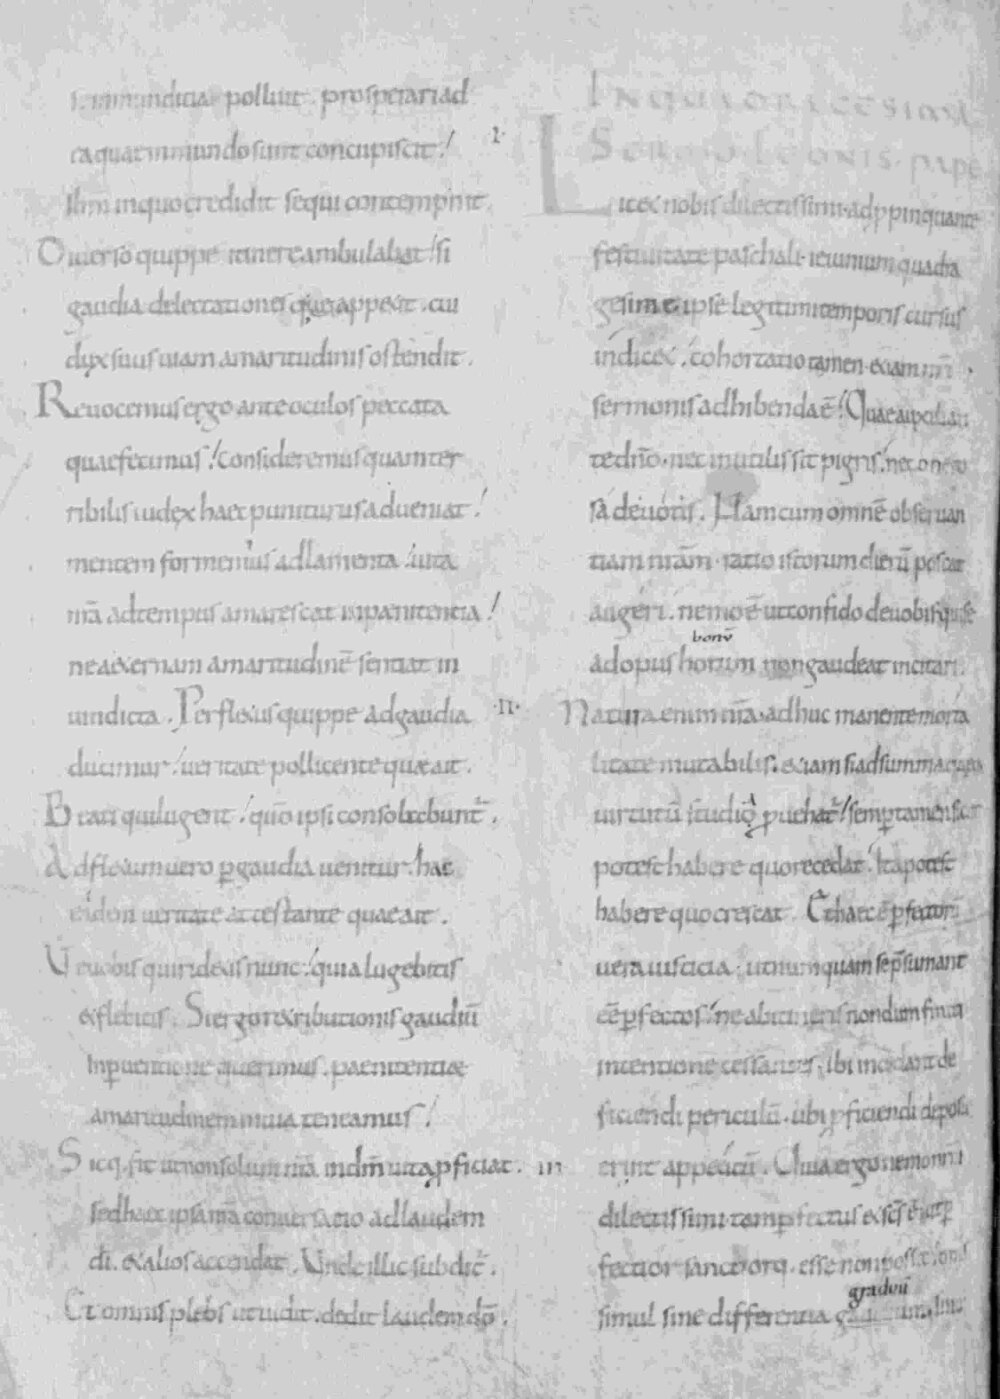 inmunditia polluit . prosperari ad
ea quae in mundo sunt concupiscit !
Ihm in quo credidit sequi contempnit .
Diuerso quippe itinere ambulabat ! si
gaudia delectationes appetiit . cui
dux suus uiam amaritudinis ostendit .
Reuocemus ergo ante oculos peccata
quae fecimus ! Consideremus quam ter
ribilis iudex haec puniturus adueniat !
mentem formemus ad lamenta ! uita
nr̄a ad tempus amarescat in paenitentia !
ne aeternam amaritudinē sentiat in
uindicta . Per fletus quippe ad gaudia
ducimur ! ueritate pollicente quae ait .
Beati qui lugent ! quō ipsi consolabunt̄ .
Ad fletum uero ꝑ gaudia uenitur . hac
eadem ueritate attestante quae ait .
Ue uobis qui ridetis nunc ! quia lugebitis
et flebitis . Si ergo retributionis gaudiū
In ꝑuentione querimus . paenitentiae
amaritudinem in uia teneamus !
Sicq; fit ut non solum nr̄a in dm̄ uita ꝓficiat .
sed haec ipsa nr̄a conuersatio ad laudem
dī . et alios accendat . Unde illic subdit̄ .
Et omnis plebs ut uidit . dedit laudem dō .
IN QUADRAGESIMA
I. SERMO LEONIS PAPE
Licet nobis dilectissimi adpropinquante
festiuitate paschali . ieiunium quadra
gesimae ipse legitimi temporis cursus
indicet ! cohortatio tamen etiam nr̄i
sermonis adhibenda ē ! Quae auxilian
te dn̄o . nec inutilis sit pigris ! nec onero
sa deuotis . Nam cum omnē obseruan
tiam nr̄am . ratio istorum dierū poscat
augeri . nemo ē ut confido de uobis qui se
bonū
ad opus non gaudeat incitari .
.II. Natura enim nr̄a . adhuc manente morta
litate mutabilis . etiam si ad summa quaeque
uirtutū studia ꝓuehat̄ ! semꝑ tamen sicut
potest habere quo recedat ! ita potest
habere quo crescat . Et haec ē ꝑfectorū
uera iusticia . ut numquam se p̄sumant
eē ꝑfectos ! ne ab itineris nondum finiti
intentione cessantes . ibi incidant de
ficiendi periculū . ubi ꝓficiendi deposu
erint appetitū . Quia ergo nemo nr̄m
dilectissimi tam ꝑfectus et scs̄ ē ut ꝑ
fectior sanctiorq; esse non possit . omnes
graduū
simul sine differentia